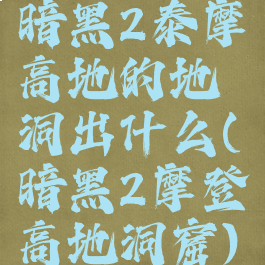 暗黑2泰摩
高地的地
洞出什么(
暗黑2摩登
高地洞窟)